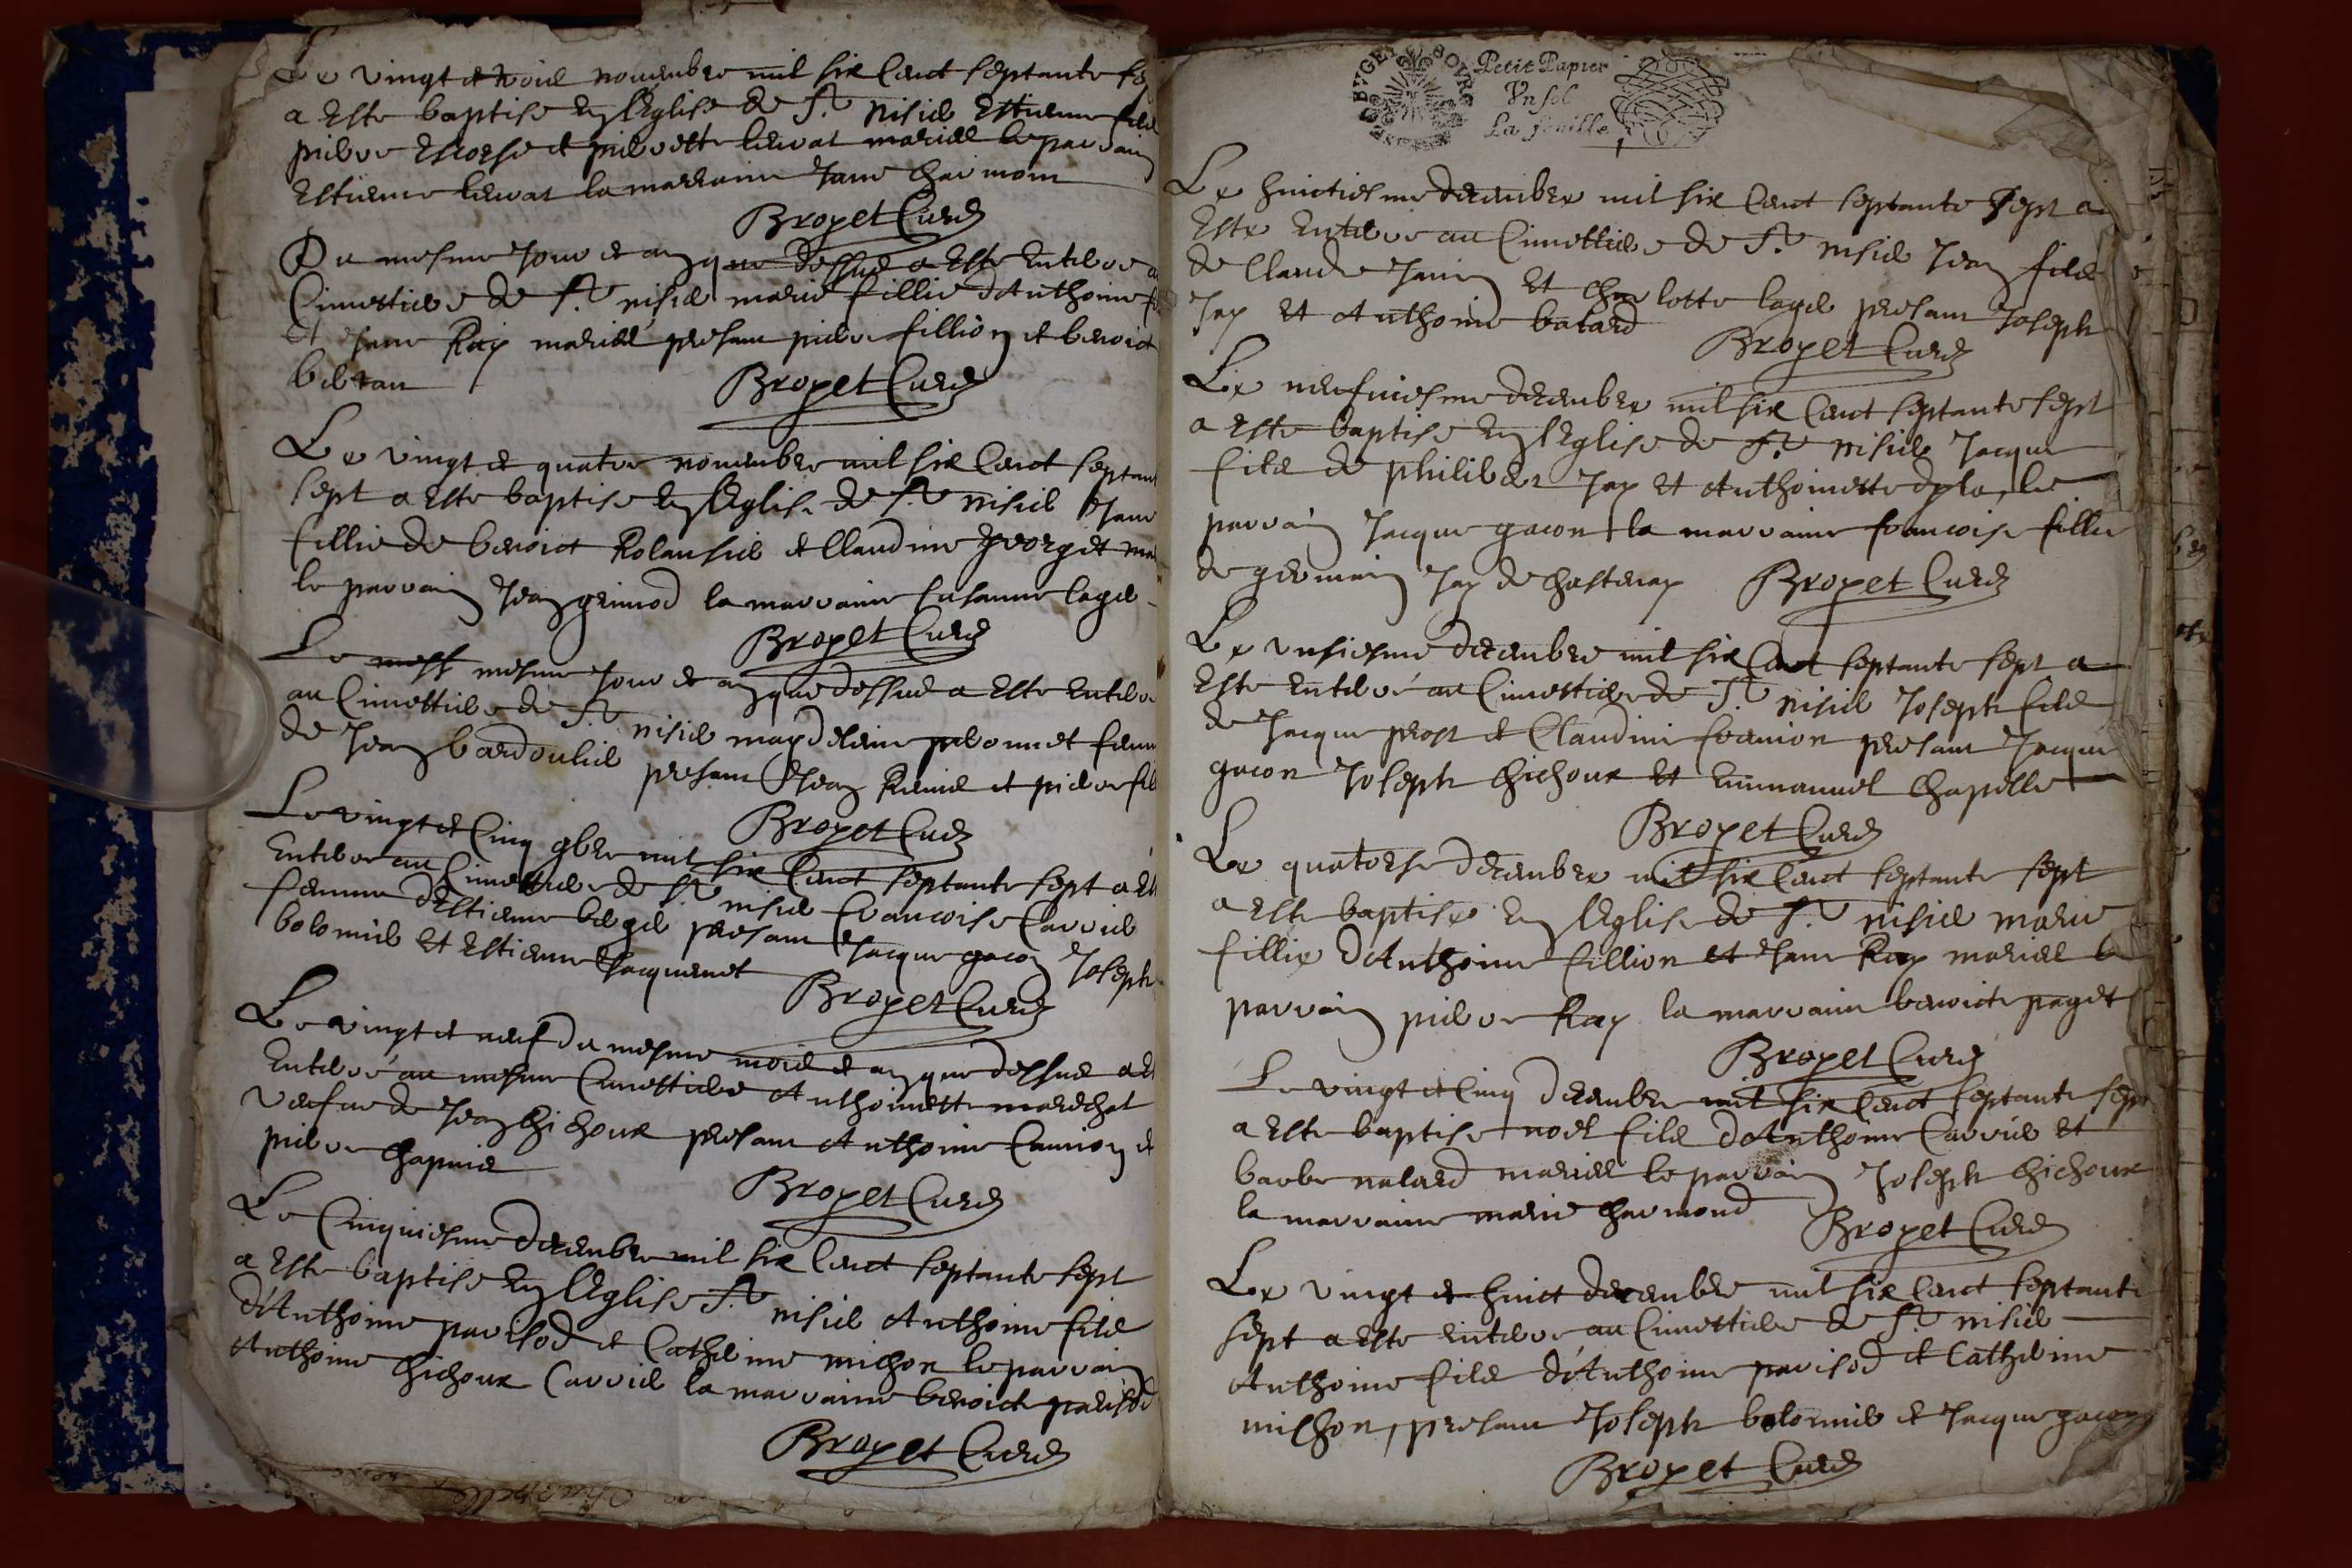 Le vingt et trois novembre mil six cent septante se
a este baptise en leglise de St nisiés Estienne fils
pierre Escorse et pierrette levrat mariés le parrain
Estienne levrat la marraine Jane charmom
Bropet Curé
Du mesme Jour et an que dessus a este Enterre a
Cimestiere de St nisiés marie fillie d'Anthoine
et Jane Ray mariés presant pierre fillion et benoict
beltan
Bropet Curé
Le vingt et quatre novembre mil six cent septant
sept a este baptise en leglise de St nisiés Jane
fillie de benoict Rolansies et Claudine georget ma
le parrain Jean grimod la marraine susanne lagés
Bropet Curé
Le mesme Jour et an que dessus a este enterre
au Cimettiere de St nisiés maydeleine perbonnet femm
de Jean bardoulies presant Jean Rennes et pierre fil
Bropet Curé
Le vingt et Cinq 9bre mil six cent septante sept a est
Enterre au Cimettiere de St nisiés francoise Carriés
femme d'Estienne bergés presant Jacque gacon Joseph
bolomies et Estienne Jacquenet
Bropet Curé
Le vingt et neuf du mesme mois et an que dessus a est
Enterré au mesme Cimettiere Anthoinette marechal
vefue de Jean chichoux presant Anthoine Camion et
pierre chapuis
Bropet Curé
Le Cinquiesme decembre mil six cent septante sept
a este baptise en leglise St nisiés Anthoine fils
d'Anthoine parisod et Catherine michon le parrain
Anthoine chichoux Carriés la marraine benoicte parisod
Bropet Curé
BUGEY BOURG
Petit Papier
Un sol
La feuille
Le huictiesme decembre mil six cent septante sept a
Este Enterré au Cimettiere de St nisiés Jean fils
de Claude Janin Et charlotte lagés presant Joseph
Jay et Anthoine batard
Bropet Curé
Le neufuiesme decembre mil six cent septante sept
a este baptise en leglise de St nisiés Jacque
fils de philiber Jay et Anthoinette le
parrain Jacque gacon la marraine francoise fillie
de germain Jay de chastenay
Bropet Curé
Le unsiesme decembre mil six cent septante sept a
este enterré au Cimettiere de St nisiés Joseph fils
de Jacque prost et Claudine framion presant Jacque
gacon Joseph chichoux et Emmanuel chapelle
Bropet Curé
Le quatorse decembre mil six cent septante sept
a este baptise en leglise de St nisiés marie
fillie d'Anthoine fillion et Jane Ray mariés le
parrain pierre Ray la marraine benoicte paget
Bropet Curé
Le vingt et Cinq decembre mil six cent septante sept
a este baptise noel fils d'Anthoine Carriés et
barbe nalard mariés le parrain Joseph chichoux
la marraine marie charmond
Bropet Curé
Le vingt et huict decembre mil six cent septante
sept a este enterre au Cimettiere de St nisiés
Anthoine fils d'Anthoine parisod et Catherine
michon, presant Joseph bolomies et Jacque gacon
Bropet Curé